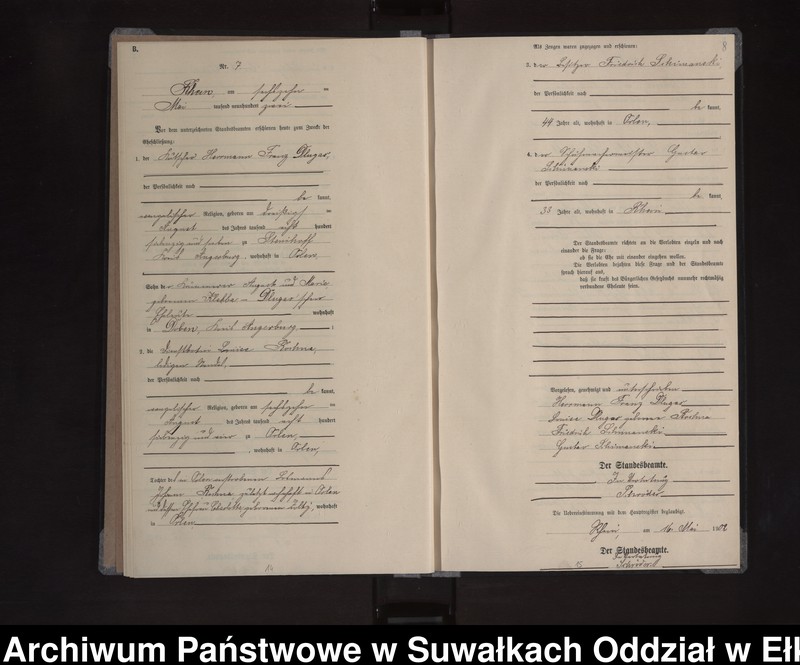 B.
Nr. 7
Rhein, am sechszehnten
Mai tausend neunhundert zwei
Vor dem unterzeichneten Standesbeamten erschienen heute zum Zwecke der
Eheschließung:
1. der Kutscher Herrmann Franz Dlugas,
der Persönlichkeit nach
be kannt,
evangelischer Religion, geboren am dreißigsten
August des Jahres tausend acht hundert
siebenzig und sieben zu Steinhoff
Kreis Angerburg, wohnhaft in Orlen,
Sohn des August und Marie
geborenen Dlugas'schen
Eheleute wohnhaft
in Doben, Kreis Angerburg
2. die Louise Rostna,
ledigen Standes,
der Persönlichkeit nach
be kannt,
evangelischer Religion, geboren am sechszehnten
August des Jahres tausend acht hundert
siebenzig und vier zu Orlen,
, wohnhaft in Orlen,
Tochter des in Orlen verstorbenen
zuletzt wohnhaft in Orlen
und dessen Ehefrau geborenen wohnhaft
in Orlen
8
Als Zeugen waren zugezogen und erschienen:
3. der Besitzer Friedrich Schimanski,
der Persönlichkeit nach
be kannt,
49 Jahre alt, wohnhaft in Orlen,
4. der Schuhmachermeister Gustav
Schimanski
der Persönlichkeit nach
be kannt,
33 Jahre alt, wohnhaft in Rhein
Der Standesbeamte richtete an die Verlobten einzeln und nach
einander die Frage:
ob sie die Ehe mit einander eingehen wollen.
Die Verlobten bejahten diese Frage und der Standesbeamte
sprach hierauf aus,
daß sie kraft des Bürgerlichen Gesetzbuchs nunmehr rechtmäßig
verbundene Eheleute seien.
Vorgelesen, genehmigt und unterschrieben
Herrmann Franz Dlugas
Louise Dlugas geborene Rostna
Friedrich Schimanski
Gustav Schimanski
Der Standesbeamte.
In Vertretung
Schröder
Die Uebereinstimmung mit dem Hauptregister beglaubigt.
Rhein, am 16. Mai 1902
Der Standesbeamte.
In Vertretung
Schröder
Archiwum Państwowe w Suwałkach Oddział w Ełk